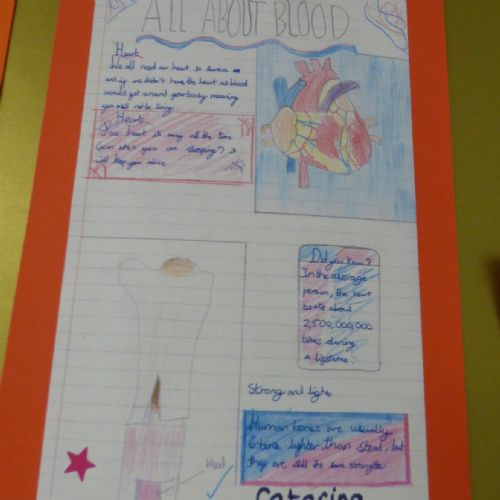 ALL ABOUT BLOOD
Heart
We all need our heart to survive as
if we didn't have the heart no blood
would get around your body meaning
you will not be living.
Heart
Your heart is going all the time
even when you are sleeping?
will keep you alive.
Did you know?
In the average
person, the heart
beats about
2,500,000,000
times during
a lifetime.
Strong and light
Human bones are usually
6 times lighter than steal, but
they are still the same strength.
blood
Caterina